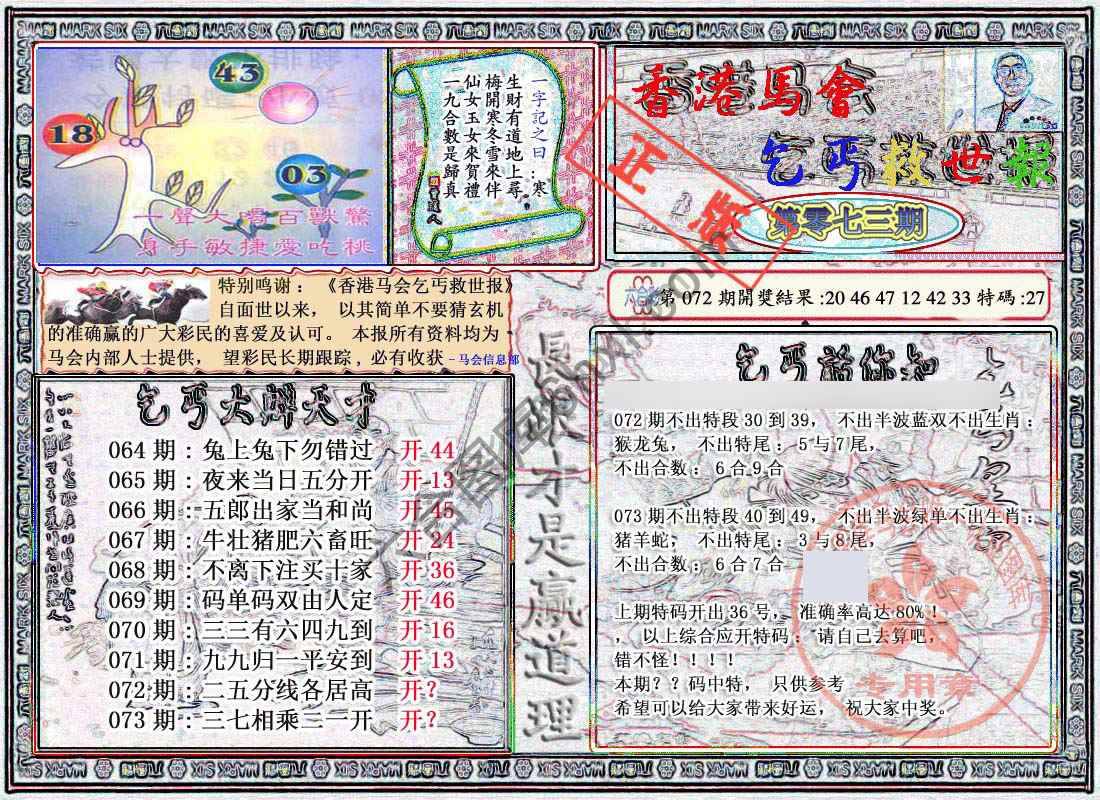 43
18
03
一聲大喝百獸驚
身手敏捷愛吃桃
一字記之曰:寒
生財有道地上尋
梅開寒冬雪來伴
仙女玉女來賀禮
一九合數是歸真
香港馬會
乞丐救世報
第零七三期
正版
特别鸣谢：《香港马会乞丐救世报》
自面世以来， 以其简单不要猜玄机
的准确赢的广大彩民的喜爱及认可。 本报所有资料均为
马会内部人士提供， 望彩民长期跟踪，必有收获 -马会信息部
第 072 期開獎結果 :20 46 47 12 42 33 特碼 :27
064 期：兔上兔下勿错过 开 44
065 期：夜来当日五分开 开 13
066 期：五郎出家当和尚 开 45
067 期：牛壮猪肥六畜旺 开 24
068 期：不离下注买十家 开 36
069 期：码单码双由人定 开 46
070 期：三三有六四九到 开 16
071 期：九九归一平安到 开 13
072 期：二五分线各居高 开?
073 期：三七相乘三一开 开?
是赢道理
072 期不出特段 30 到 39， 不出半波蓝双不出生肖：
猴龙兔， 不出特尾： 5 与 7 尾，
不出合数： 6 合 9 合
073 期不出特段 40 到 49， 不出半波绿单不出生肖：
猪羊蛇， 不出特尾： 3 与 8 尾，
不出合数： 6 合 7 合
上期特码开出 36 号， 准确率高达 80%！
， 以上综合应开特码： 请自己去算吧，
错不怪！！！！
本期？？码中特， 只供参考
希望可以给大家带来好运， 祝大家中奖。
专用章
MARK SIX